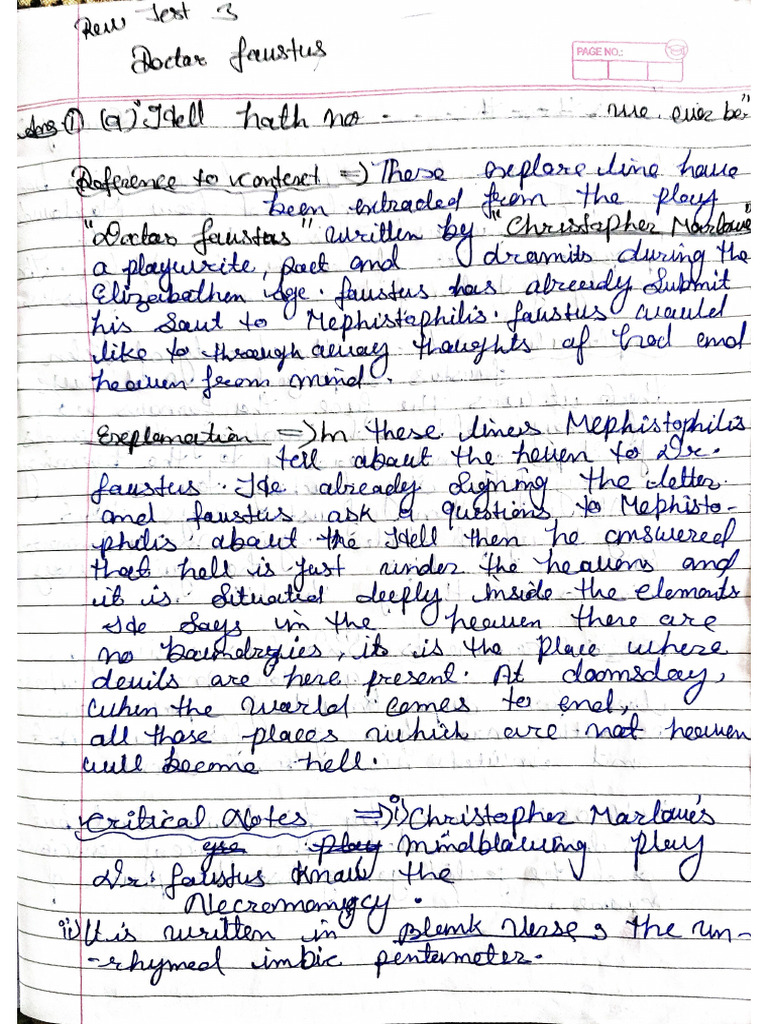 Rew Test 3
Doctor faustus
PAGE NO.:
Ans ① (a) "Hell hath no - - - - - - - - - - - me ever be"
Reference to context => These explore line have
been extracted from the play
"Doctor faustus" written by "Christopher Marlowe"
a playwrite, poet and dramits during the
Elizeibathen age. faustus has already submit
his Saut to Mephistophilis. faustus would
like to through away thoughts of God and
heaven from mind.
Explamation => In these lines Mephistophilis
tell about the heuen to Dr.
faustus. He already signing the letter
and faustus ask a questions to Mephisto-
philis about the Hell then he answered
that hell is just under the heavens and
it is situated deeply inside the elements
He says in the heaven there are
no boundryies, its is the place where
devils are here present. At doomsday,
when the world comes to end,
all those places which are not heaven
will become hell.
Critical Notes => i) Christopher Marlowe's
play mindblawing play
Dr. faustus Know the
Necromomgcy.
ii) It is written in Blank Verse, the un-
-rhymed imbic pentameter.